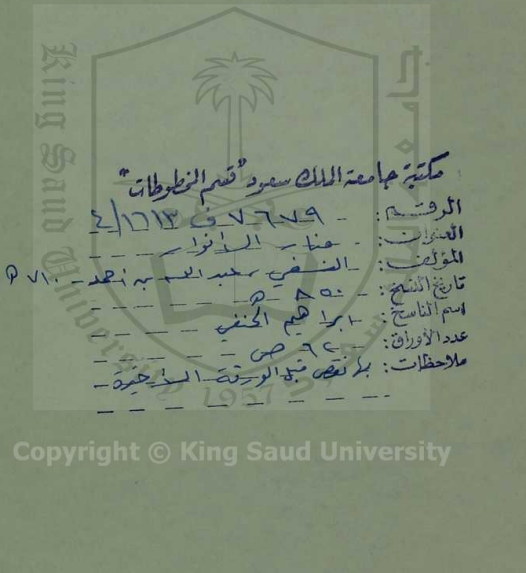 مكتبة جامعة الملك سعود "قسم المخطوطات"
الرقم: - ٧٦٧٩ ف ١٦١٣/٤
العنوان: - منار الأنوار
المؤلف: - النسفي، عبد الله بن أحمد - ٧١٠ هـ
تاريخ النسخ: - ٨٥٠ هـ
اسم الناسخ: - ابراهيم الحنفي
عدد الأوراق: - ٦٢ ص
ملاحظات: - بها نقص قبل الورقة الأخيرة -
King Saud University
1957
Copyright © King Saud University